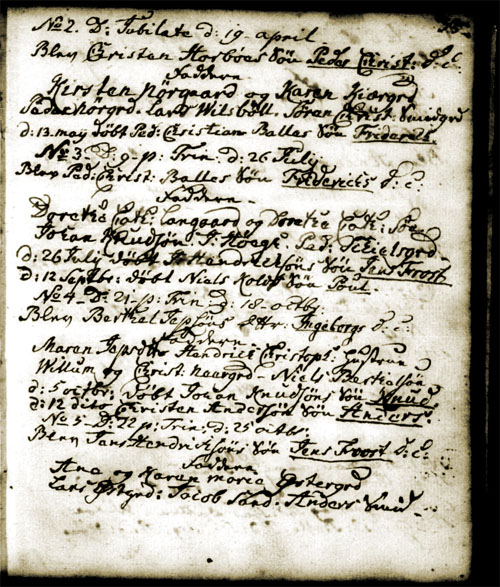 No 2. D: Jubilate d: 19. april
Blev Christen Horboes Søn Peder Christ: d: C:
Faddere
Kirsten Nørgaard og Karen Kiærgrd
Peder Nørgrd. Lars Wilsbøll. Søran Christ. Smidgrd
d: 13. may døbt Ped: Christian Balles Søn Friderich.
No 3. D. 9. p: Trin: d: 26 July
Blev Ped: Christ: Balles Søn Friderichs d: C:
Faddere
Dorethe Cath: Langaard og Dorethe Cath:
Johan Knudsøn J: Høegh. Ped:
d: 26 July døbt J: Hendrichsøns Søn Jens Troost
d: 12 Septbr: døbt Niels Kolds Søn Poul
No 4. D: 21. p: Trin: d: 18. octbr.
Blev Berthel Jepsøns Dttr: Ingeborgs d: C:
Faddere
Maren Jepsdttr Hendrich Christoph:
Willum og Christ. Neergrd. Niels Berthelsøn
d: 5 octbr: døbt Johan Knudsøns Søn Knud
d: 12 dito Christen Andersøn Søn Anders.
No 5. D: 22 p: Trin: d: 25 octbr.
Blev Jens Hendrichsøns Søn Jens Troost d: C:
Faddere
Ana og Karen Marie Østergrd
Lars Østgrd: Jacob Sand. Anders Smid